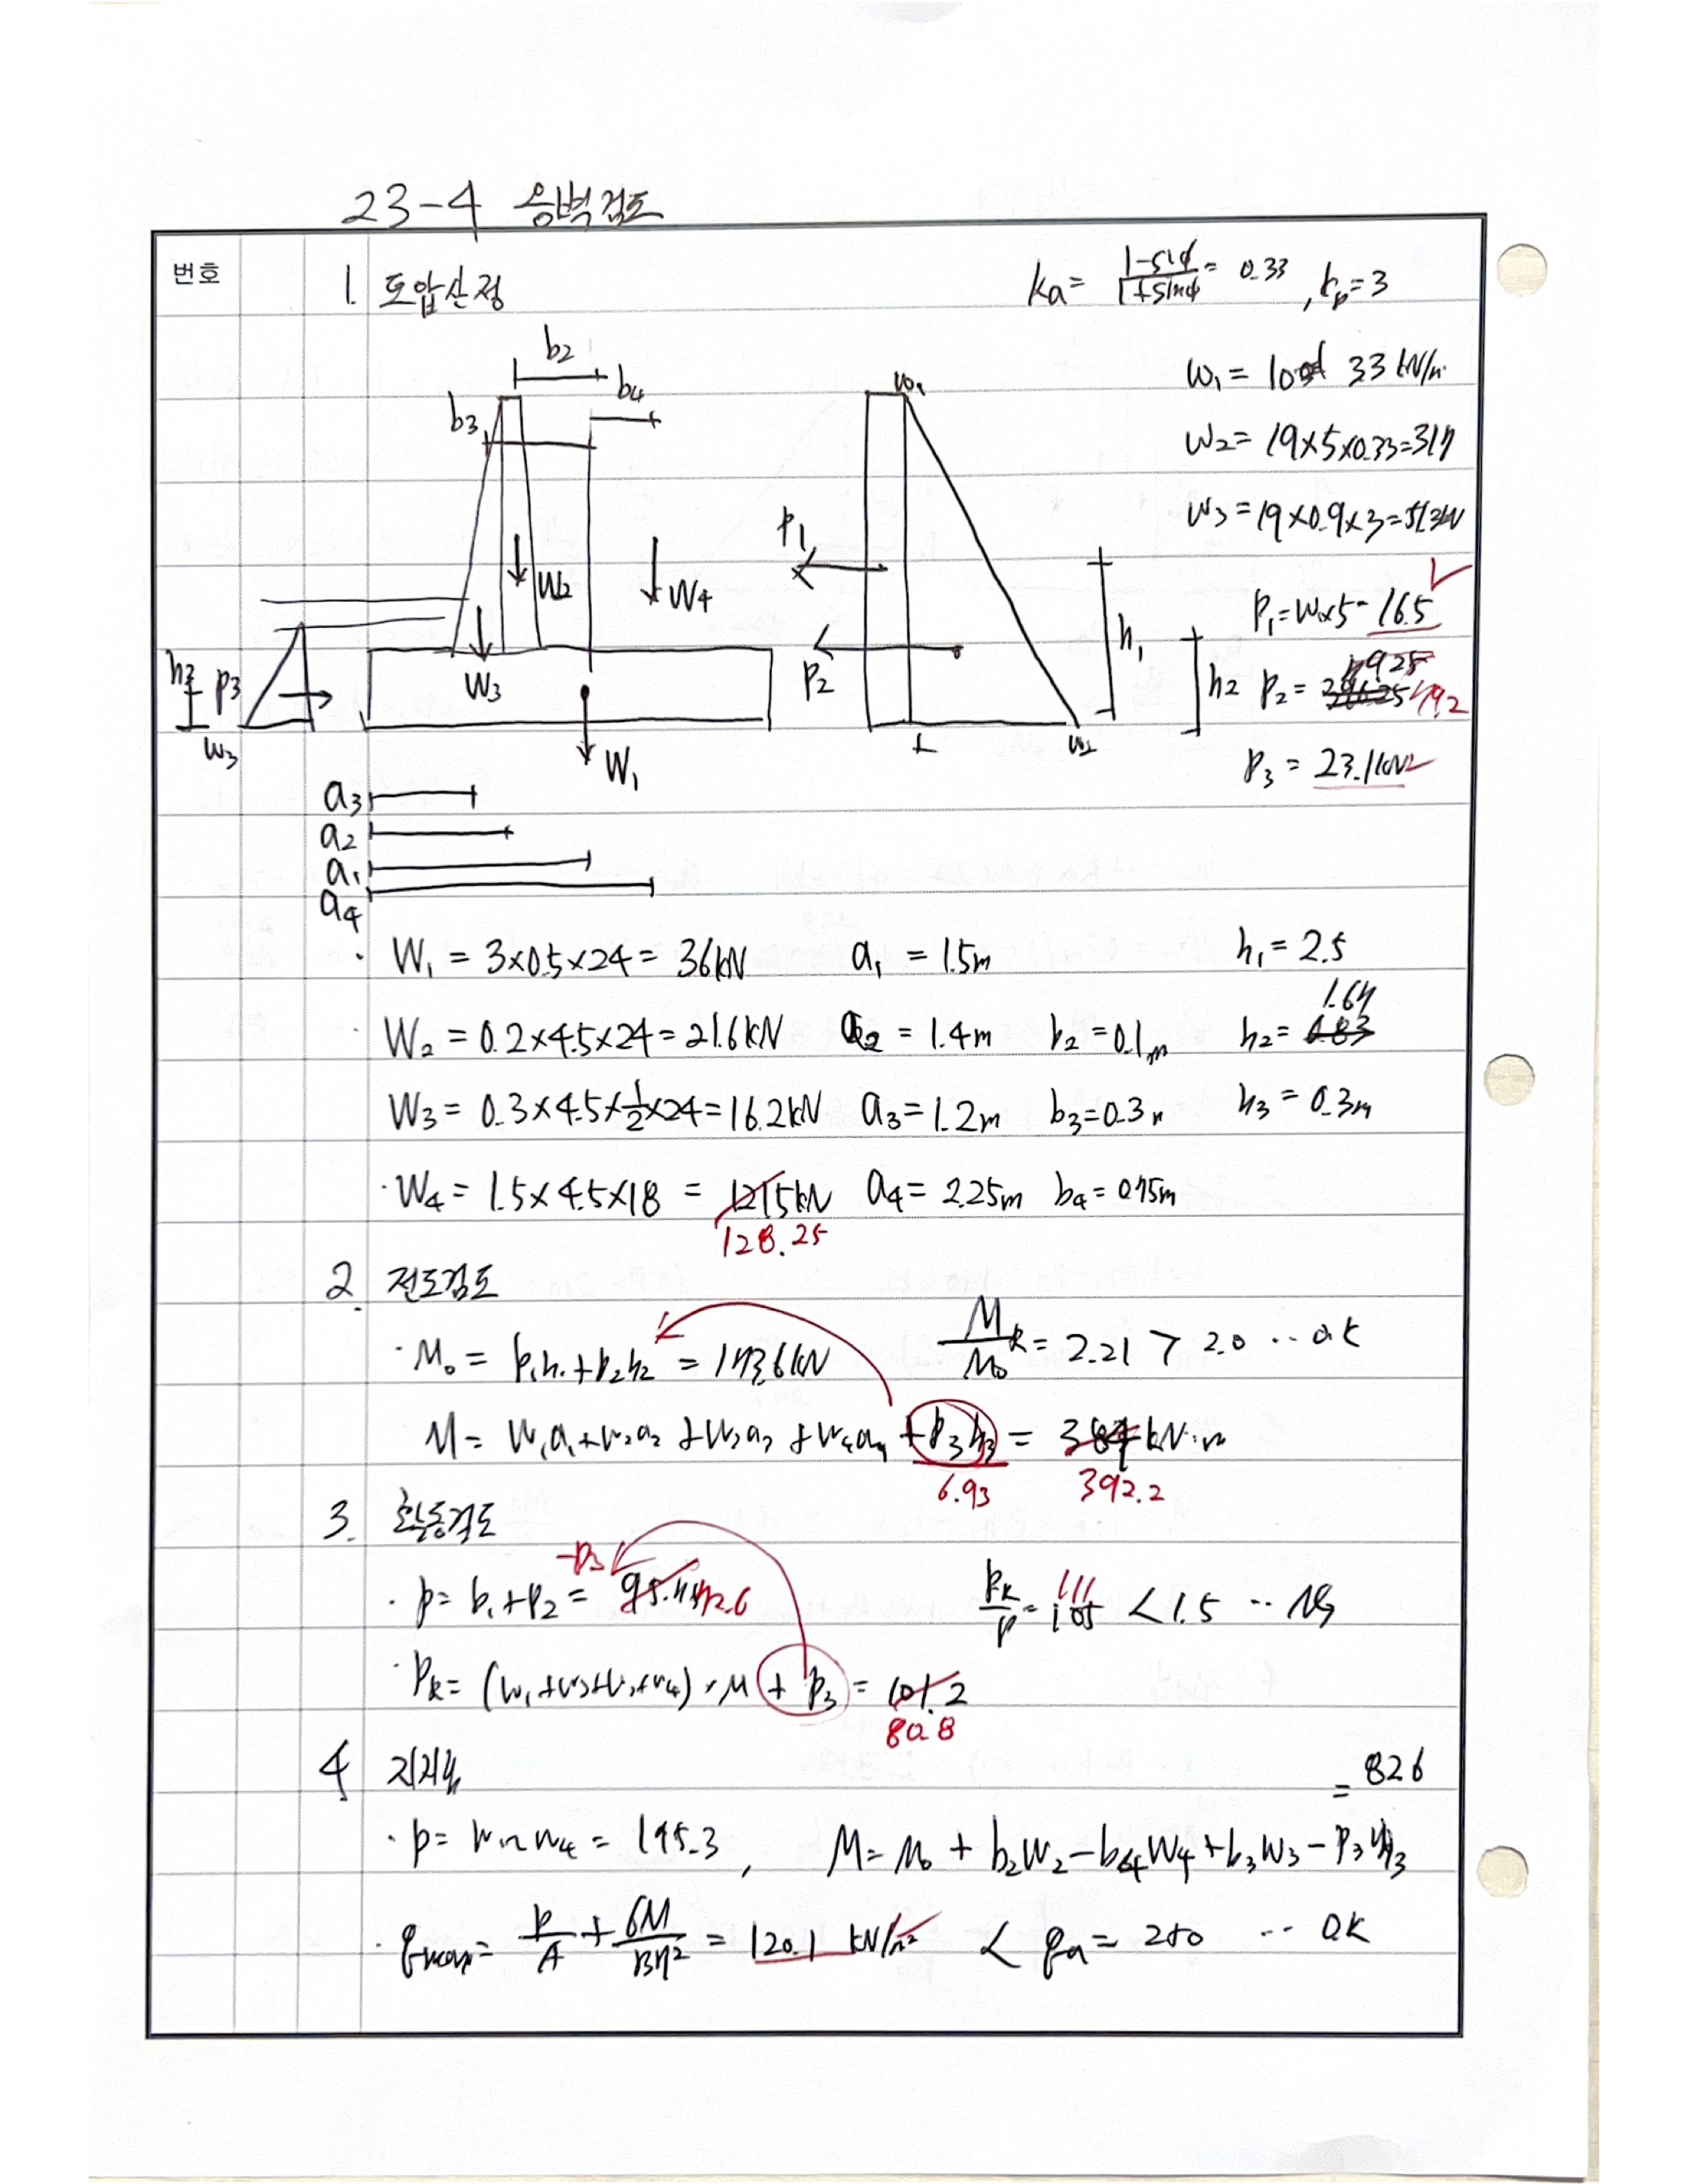 23-4 옹벽검토
번호
1. 토압산정
ka = 1-sinφ / 1+sinφ = 0.33 , kp=3
b2
b4
b3
w1
w1 = 10 3.3 kN/m
w2 = 19×5×0.33=31.7
w3 = 19×0.9×3=51.3kN
P1
W2
W4
h1
P1=w1×5=16.5
h3
P3
W3
P2
h2
P2 = 79.25 79.2
w3
W1
w2
P3 = 23.1kN
a3
a2
a1
a4
· W1 = 3×0.5×24 = 36kN a1 = 1.5m h1 = 2.5
· W2 = 0.2×4.5×24 = 21.6kN a2 = 1.4m b2 = 0.1m h2 = 0.83 1.67
W3 = 0.3×4.5×1/2×24=16.2kN a3=1.2m b3=0.3m h3 = 0.3m
· W4 = 1.5×4.5×18 = 121.5kN a4= 2.25m b4= 0.75m
128.25
2. 전도검토
· Mo = P1h1+P2h2 = 173.6kN MR/Mo = 2.21 > 2.0 ·· ok
M = W1a1+W2a2+W3a3+W4a4+P3h3 = 384kN·m
6.93 392.2
3. 활동검토
-P3
· P= P1+P2 = 72.6 PR/P = 1.05 1.11 <1.5 ·· NG
· PR= (W1+W2+W3+W4)×μ + P3 = 101.2
80.8
4. 지지력
= 82.6
· P= W1~W4 = 195.3 , M= Mo + b2W2-b4W4+b3W3-P3h3
· qmax= P/A + 6M/BH² = 120.1 kN/m² < qa= 250 ·· OK